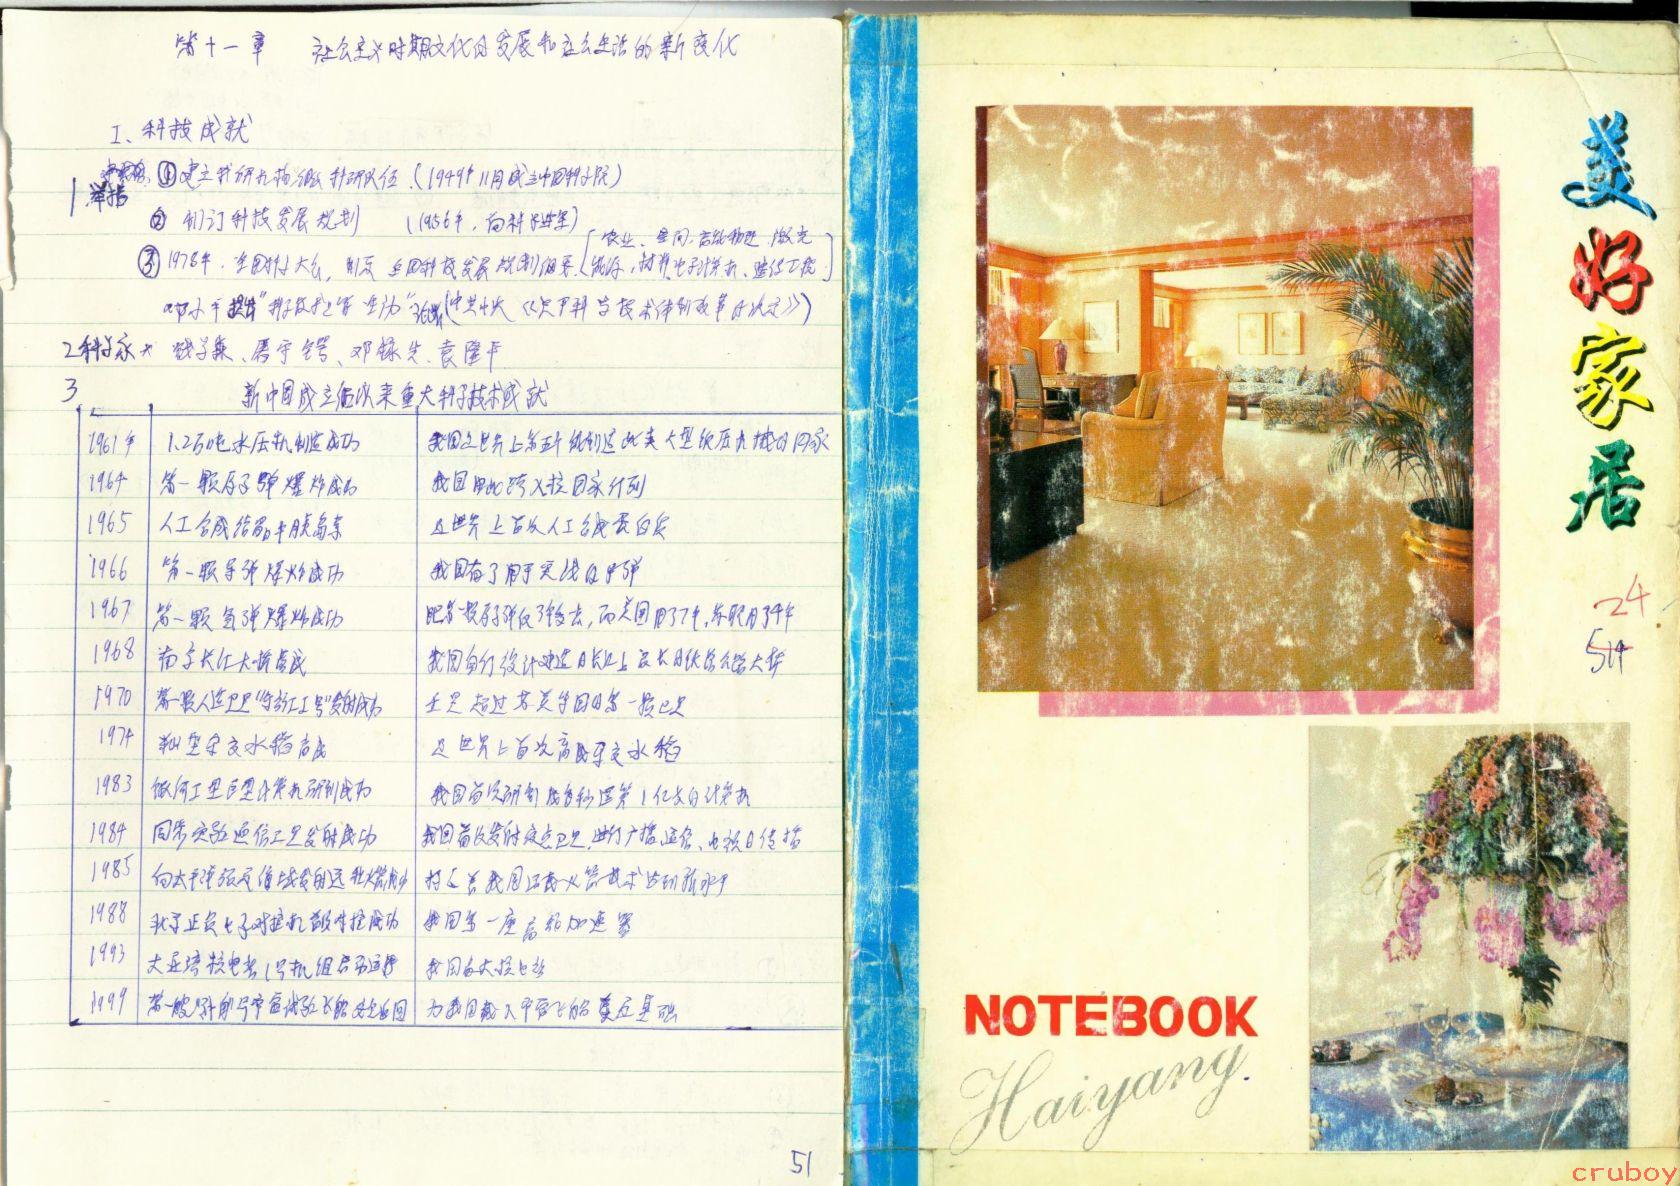 第十一章 社会主义时期文化的发展和社会生活的新变化
I、科技成就
1 举措 ①建立科研机构组织科研队伍.(1949年11月成立中国科学院)
② 制订科技发展规划 (1956年,向科学进军)
③ 1978年.全国科学大会,制定 全国科技发展规划纲要.
[农业、空间,高能物理,激光
能源,材料,电子计算机、遗传工程.]
邓小平提出"科学技术是第一生产力"论断
2 科学家 钱学森、唐守锷、邓稼先、袁隆平
3 新中国成立后以来重大科学技术成就
1961年 1.2万吨水压机制造成功 我国是世界上第五个能制造此类大型锻压机械的国家
1964 第一颗原子弹爆炸成功 我国由此跨入核国家行列
1965 人工合成结晶牛胰岛素 是世界上首次人工合成蛋白质
1966 第一颗导弹爆炸成功 我国有了用于实战的导弹
1967 第一颗氢弹爆炸成功 而美国用了7年,苏联用了4年
1968 南京长江大桥落成 我国自行设计建造的长江上最长的铁路公路大桥
1970 第一颗人造卫星"东方红1号"发射成功 重量超过苏美等国的第一颗卫星
1974 籼型杂交水稻育成 是世界上首次育成杂交水稻
1983 银河I型巨型计算机研制成功 我国首次研制成每秒运算1亿次的计算机
1984 同步实验通信卫星发射成功 我国首次发射定点卫星,进行广播、通信、电视的传播
1985 向太平洋预定海域发射运载火箭成功 标志着我国运载火箭技术达到新水平
1988 北京正负电子对撞机首次对撞成功 我国第一座高能加速器
1993 大亚湾核电站1号机组启动运行 我国最大核电站
1999 第一艘飞船"神舟"号宇宙试验飞船发射返回 为我国载人宇宙飞船奠定基础
51
美好家居
24
514
NOTEBOOK
Haiyang
cruboy